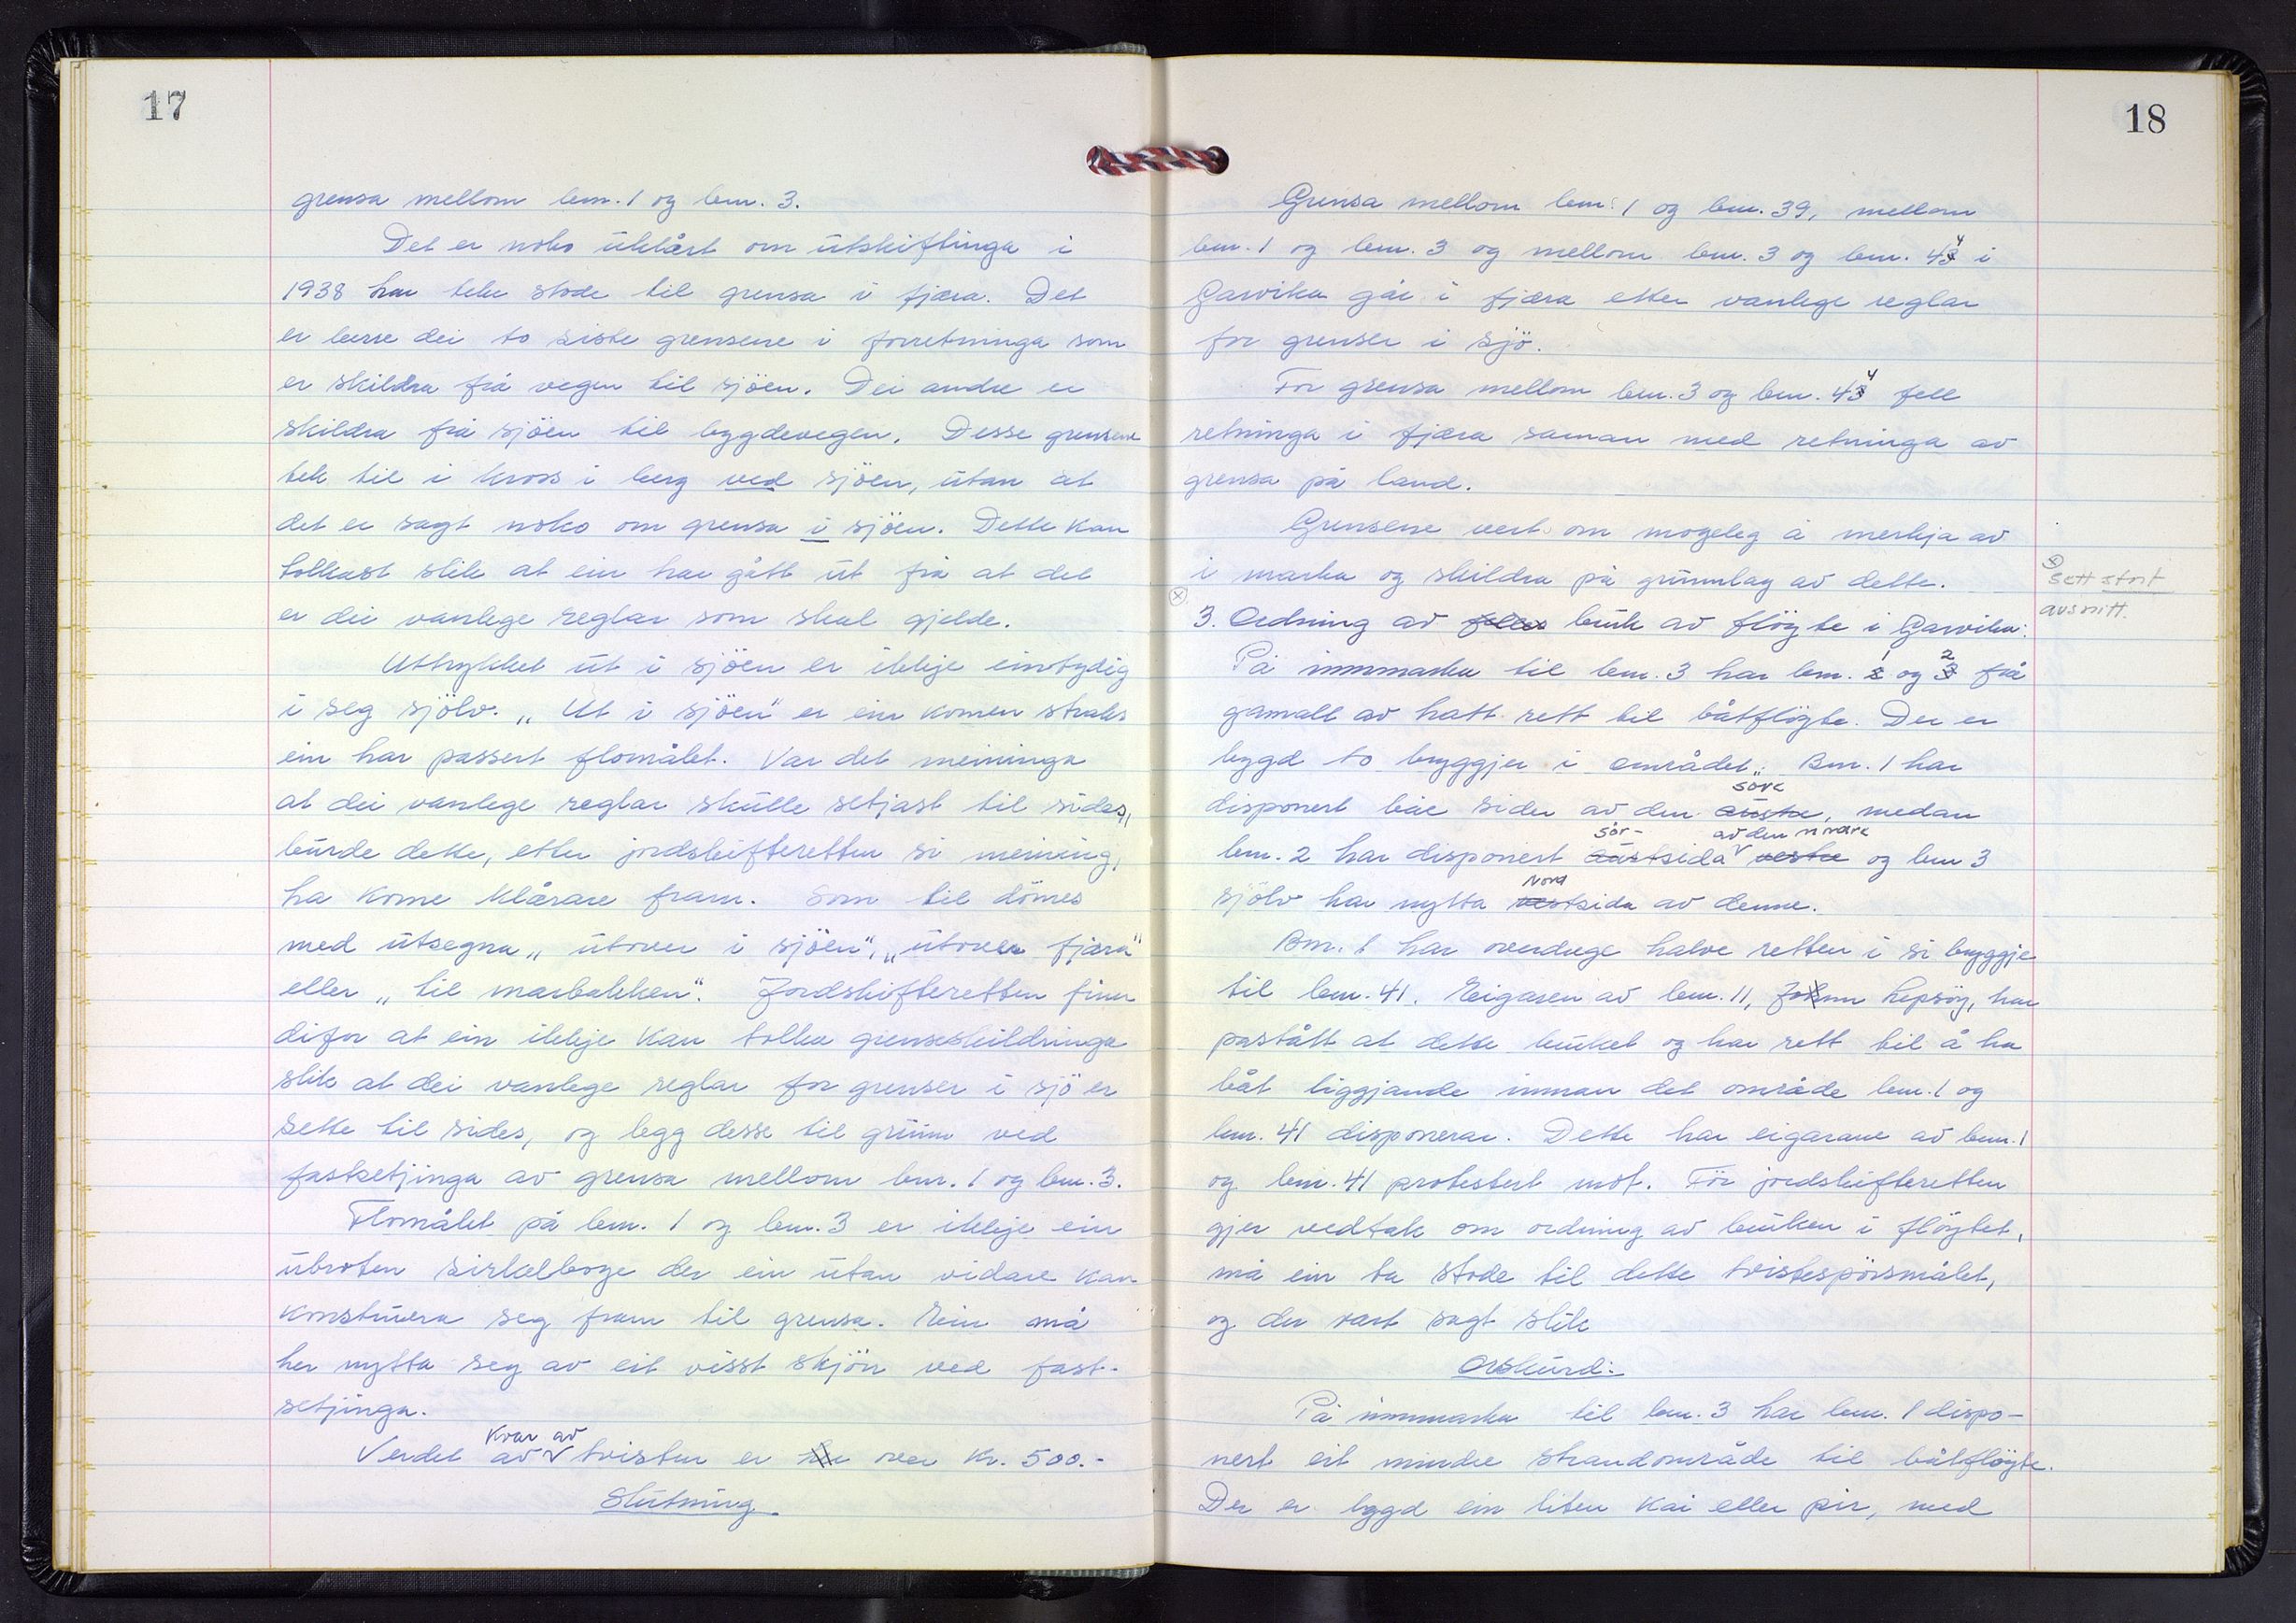 17
grensa mellom bnr. 1 og bnr. 3.
Det er noko uklårt om utskiftinga i
1938 har teke stode til grensa i fjæra. Det
er berre dei to siste grensene i forretninga som
er skildra frå vegen til sjöen. Dei andre er
skildra frå sjöen til bygdevegen. Desse grensene
tek til i kross i berg ved sjöen, utan at
det er sagt noko om grensa i sjöen. Dette kan
tolkast slik at ein har gått ut frå at det
er dei vanlege reglar som skal gjelde.
Uttrykket ut i sjöen er ikkje eintydig
i seg sjölv. „Ut i sjöen" er ein komen straks
ein har passert flomålet. Var det meininga
at dei vanlege reglar skulle setjast til sides,
burde dette, etter jordskifteretten si meining,
ha kome klårare fram. Som til dömes
med utsegna „utover i sjöen", „utover fjæra"
eller „til marbakken". Jordskifteretten finn
difor at ein ikkje kan tolka grenseskildringa
slik at dei vanlege reglar for grenser i sjö er
sette til sides, og legg desse til grunn ved
fastsetjinga av grensa mellom bnr. 1 og bnr. 3.
Flomålet på bnr. 1 og bnr. 3 er ikkje ein
ubroten sirkelboge der ein utan vidare kan
konstruera seg fram til grensa. Ein må
her nytta seg av eit visst skjön ved fast-
setjinga.
kvar av
Verdet av tvisten er over kr. 500.-
Slutning.
18
Grensa mellom bnr. 1 og bnr. 39, mellom
bnr. 1 og bnr. 3 og mellom bnr. 3 og bnr. 44 i
Garvika går i fjæra etter vanlege reglar
for grenser i sjö.
For grensa mellom bnr. 3 og bnr. 44 fell
retninga i fjæra saman med retninga av
grensa på land.
Grensene vert om mogeleg å merkja av
i marka og skildra på grunnlag av dette.
⊗ sett stort
avsnitt.
⊗
3. Ordning av felles bruk av flöyte i Garvika:
På innmarka til bnr. 3 har bnr. 1 og 2 frå
gamalt av hatt rett til båtflöyte. Der er
bygd to bryggjer i området. Bnr. 1 har
söre
disponert båe sider av den austre, medan
sör- av den nordre
bnr. 2 har disponert austsida vestre og bnr 3
Nord
sjölv har nytta vestsida av denne.
Bnr. 1 har overdrege halve retten i si bryggje
til bnr. 41. Eigaren av bnr. 11, Johnn Lepsöy, har
påstått at dette bruket og har rett til å ha
båt liggjande innan det område bnr. 1 og
bnr. 41 disponerar. Dette har eigarane av bnr. 1
og bnr. 41 protestert mot. För jordskifteretten
gjer vedtak om ordning av bruken i flöytet,
må ein ta stode til dette tvistespörsmålet,
og der vart sagt slik
Orskurd:
På innmarka til bnr. 3 har bnr. 1 dispo-
nert eit mindre strandområde til båtflöyte.
Der er bygd ein liten kai eller pir, med